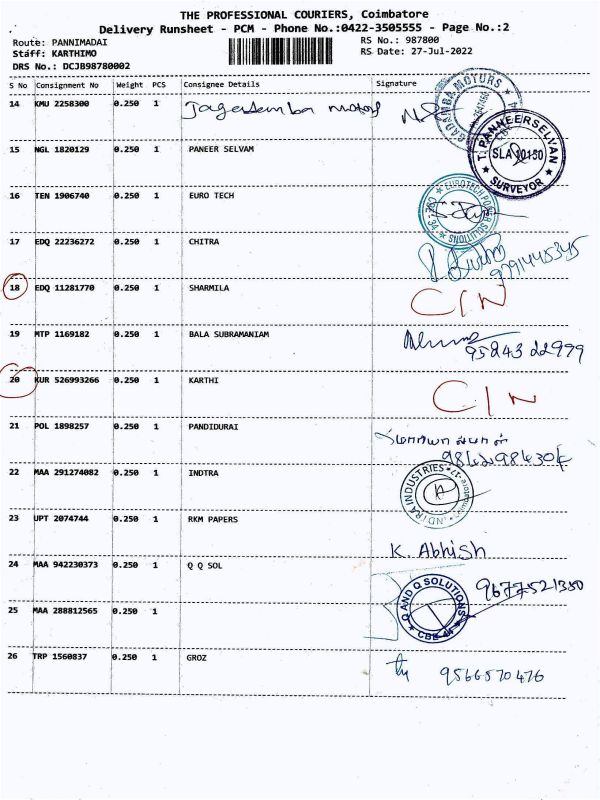 THE PROFESSIONAL COURIERS, Coimbatore
Delivery Runsheet - PCM - Phone No.:0422-3505555 - Page No.:2
Route: PANNIMADAI RS No.: 987800
Staff: KARTHIMO RS Date: 27-Jul-2022
DRS No.: DCJB98780002
S No Consignment No Weight PCS Consignee Details Signature
14 KMU 2258300 0.250 1 Jagadamba motors
15 NGL 1820129 0.250 1 PANEER SELVAM T. PANNEERSELVAN SURVEYOR
16 TEN 1906740 0.250 1 EURO TECH
17 EDQ 22236272 0.250 1 CHITRA 9791445345
18 EDQ 11281770 0.250 1 SHARMILA C/N
19 MTP 1169182 0.250 1 BALA SUBRAMANIAM 95243 22999
20 KUR 526993266 0.250 1 KARTHI C/N
21 POL 1898257 0.250 1 PANDIDURAI
22 MAA 291274082 0.250 1 INDTRA INDTRA INDUSTRIES
23 UPT 2074744 0.250 1 RKM PAPERS K. Abhish
24 MAA 942230373 0.250 1 Q Q SOL Q AND Q SOLUTIONS CBE-44 9677521350
25 MAA 288812565 0.250 1
26 TRP 1560837 0.250 1 GROZ 9566570476